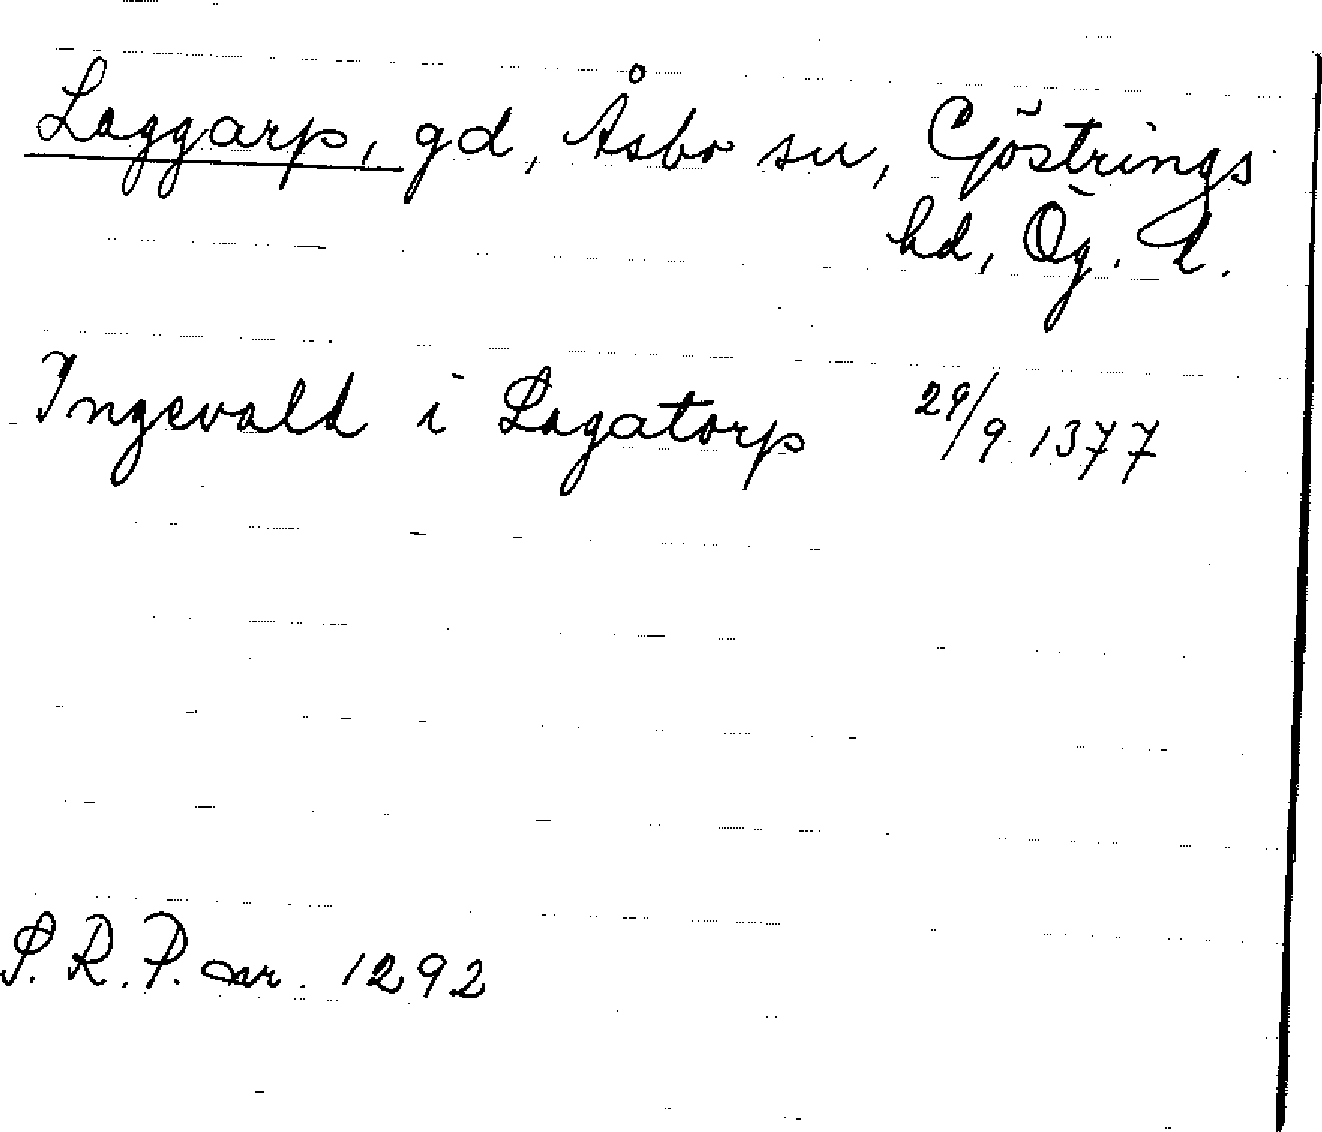 Laggarp, gd, Åsbo sn, Göstrings
hd, Ög. l.
Ingevald i Lagatorp 29/9 1377
S. R. P. nr. 1292